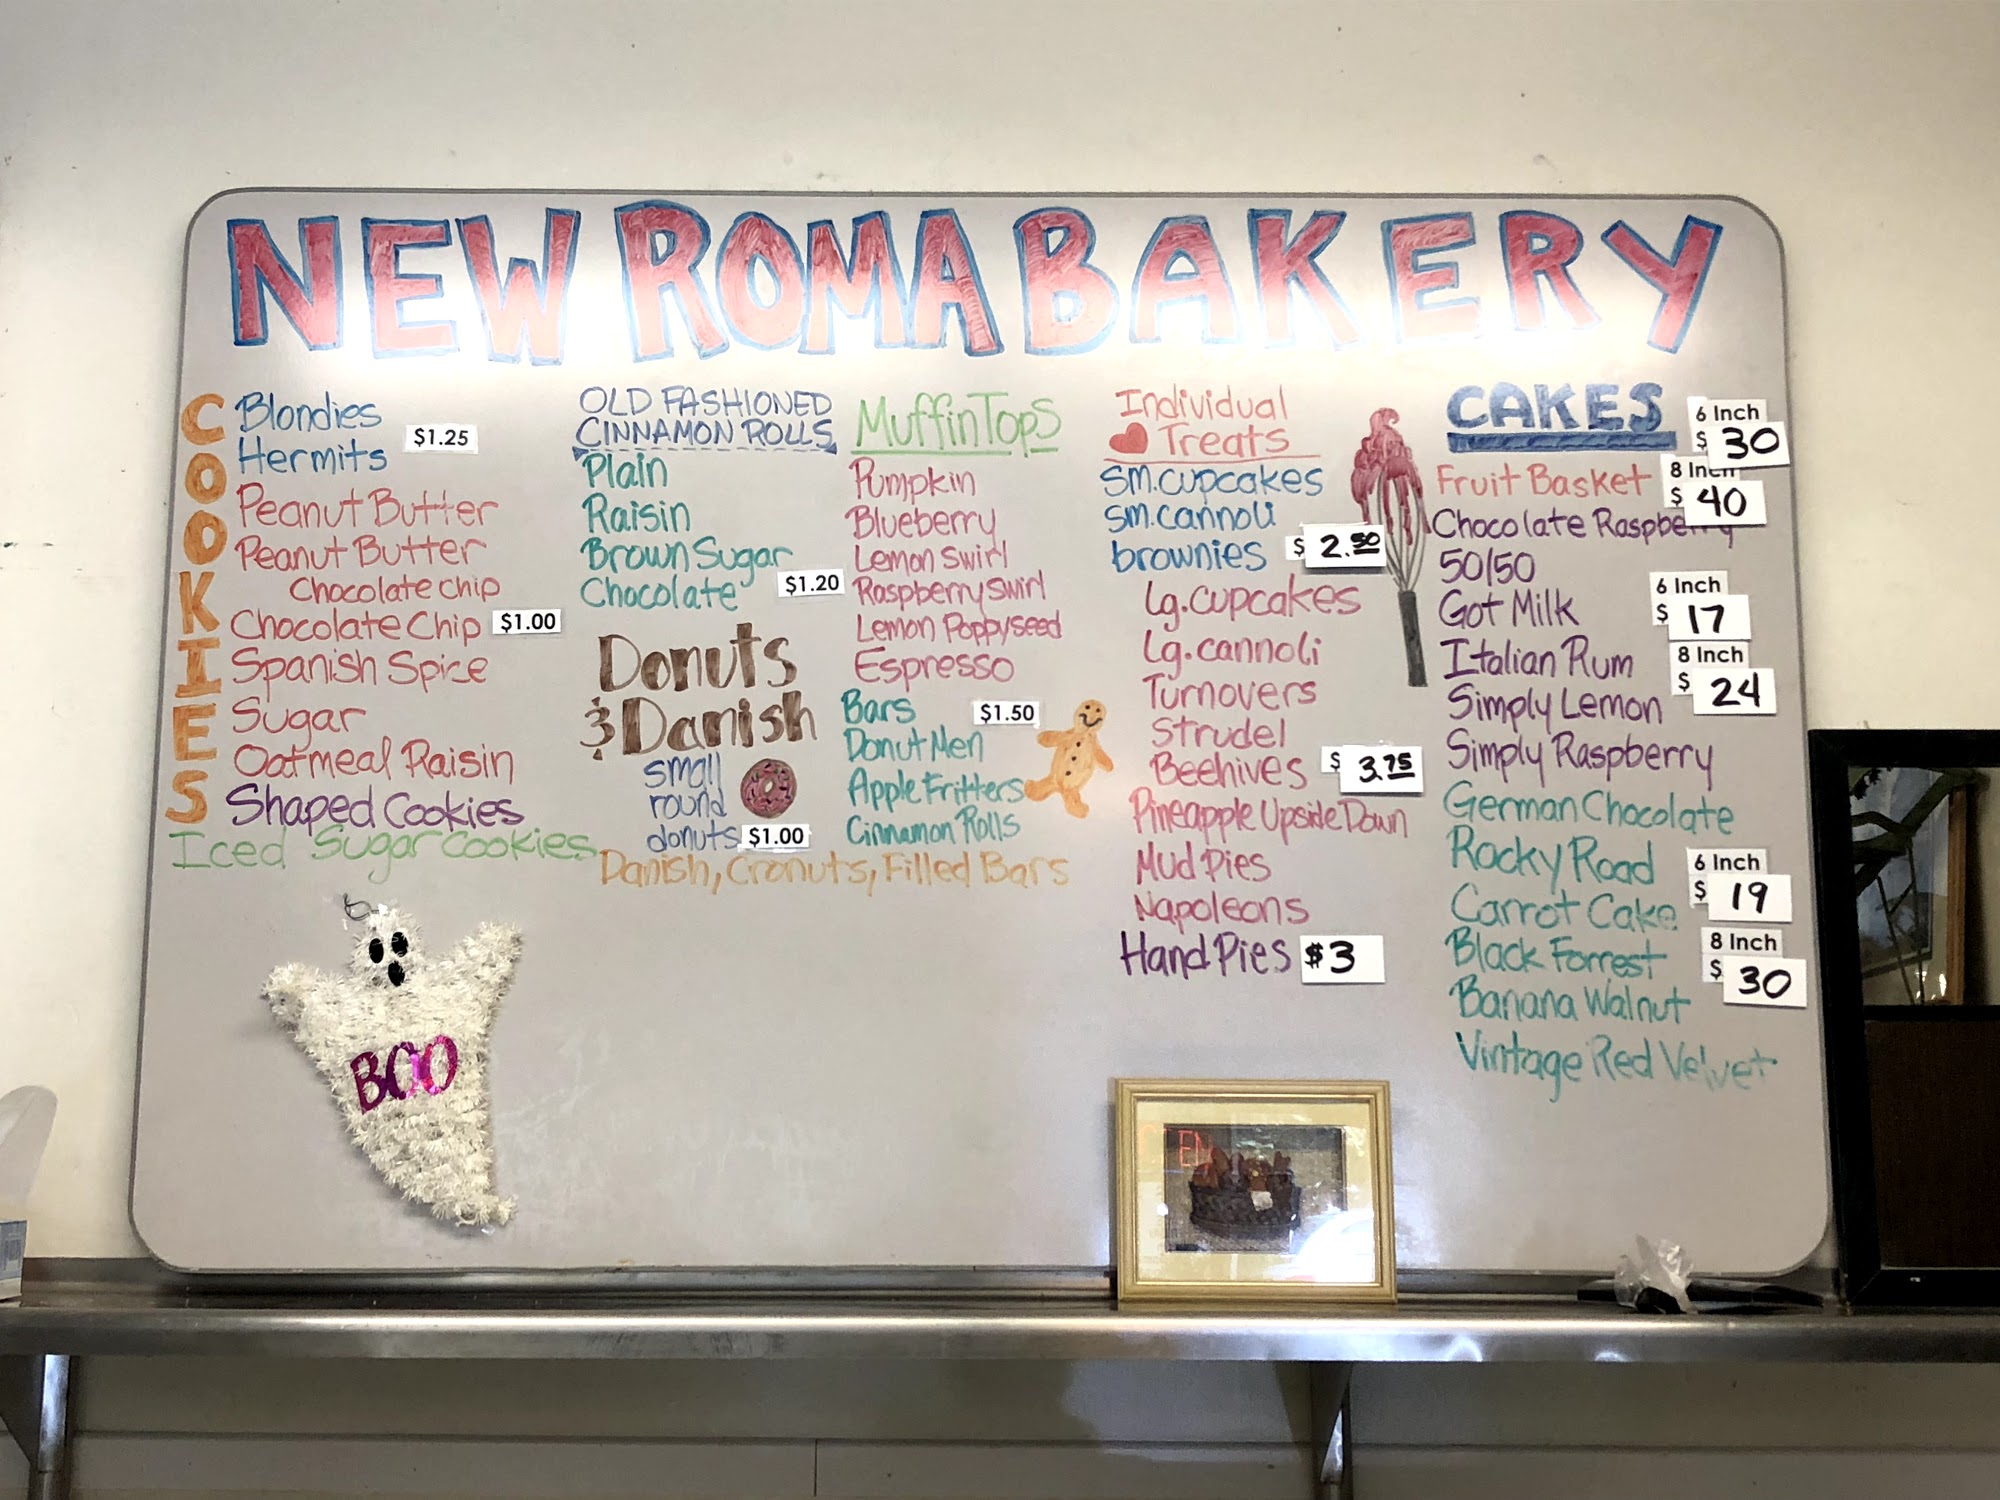 NEW ROMA BAKERY
COOKIES
Blondies
Hermits
$1.25
Peanut Butter
Peanut Butter
Chocolate Chip
Chocolate Chip
$1.00
Spanish Spice
Sugar
Oatmeal Raisin
Shaped Cookies
Iced Sugar Cookies
BOO
OLD FASHIONED
CINNAMON ROLLS
Plain
Raisin
Brown Sugar
Chocolate
$1.20
Donuts
& Danish
small
round
donuts
$1.00
Danish, Cronuts, Filled Bars
Muffin Tops
Pumpkin
Blueberry
Lemon Swirl
Raspberry Swirl
Lemon Poppyseed
Espresso
Bars
$1.50
Donut Men
Apple Fritters
Cinnamon Rolls
Individual
Treats
sm. cupcakes
sm. cannoli
brownies
$ 2.50
Lg. cupcakes
Lg. cannoli
Turnovers
Strudel
Beehives
$ 3.75
Pineapple Upside Down
Mud Pies
Napoleons
Hand Pies $3
CAKES
6 Inch
$ 30
Fruit Basket
8 Inch
$ 40
Chocolate Raspberry
50/50
Got Milk
6 Inch
$ 17
Italian Rum
8 Inch
$ 24
Simply Lemon
Simply Raspberry
German Chocolate
Rocky Road
6 Inch
$ 19
Carrot Cake
Black Forrest
8 Inch
$ 30
Banana Walnut
Vintage Red Velvet
EN